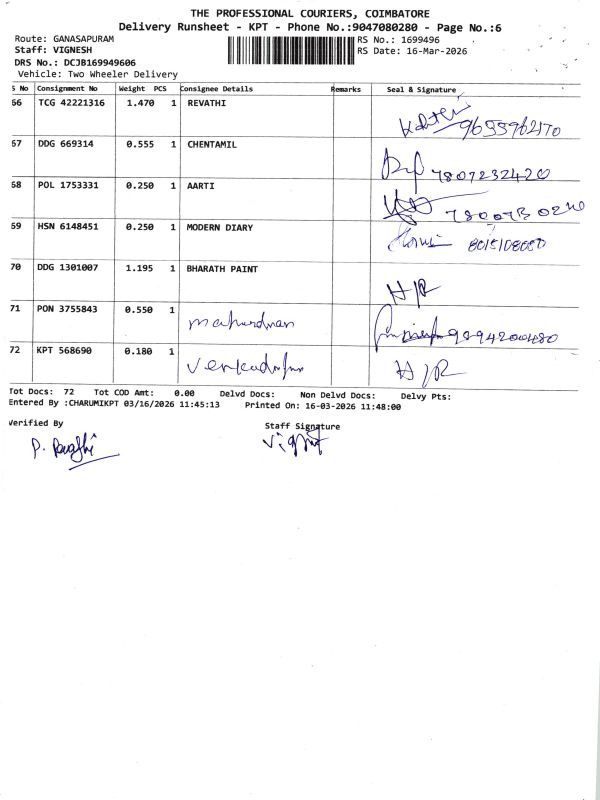 THE PROFESSIONAL COURIERS, COIMBATORE
Delivery Runsheet - KPT - Phone No.:9047080280 - Page No.:6
Route: GANASAPURAM RS No.: 1699496
Staff: VIGNESH RS Date: 16-Mar-2026
DRS No.: DCJB169949606
Vehicle: Two Wheeler Delivery
S No Consignment No Weight PCS Consignee Details Remarks Seal & Signature
66 TCG 42221316 1.470 1 REVATHI
9655962170
67 DDG 669314 0.555 1 CHENTAMIL
7807232420
68 POL 1753331 0.250 1 AARTI
69 HSN 6148451 0.250 1 MODERN DIARY
70 DDG 1301007 1.195 1 BHARATH PAINT
H/R
71 PON 3755843 0.550 1
9894200480
72 KPT 568690 0.180 1
H/R
Tot Docs: 72 Tot COD Amt: 0.00 Delvd Docs: Non Delvd Docs: Delvy Pts:
Entered By :CHARUMIKPT 03/16/2026 11:45:13 Printed On: 16-03-2026 11:48:00
Verified By Staff Signature